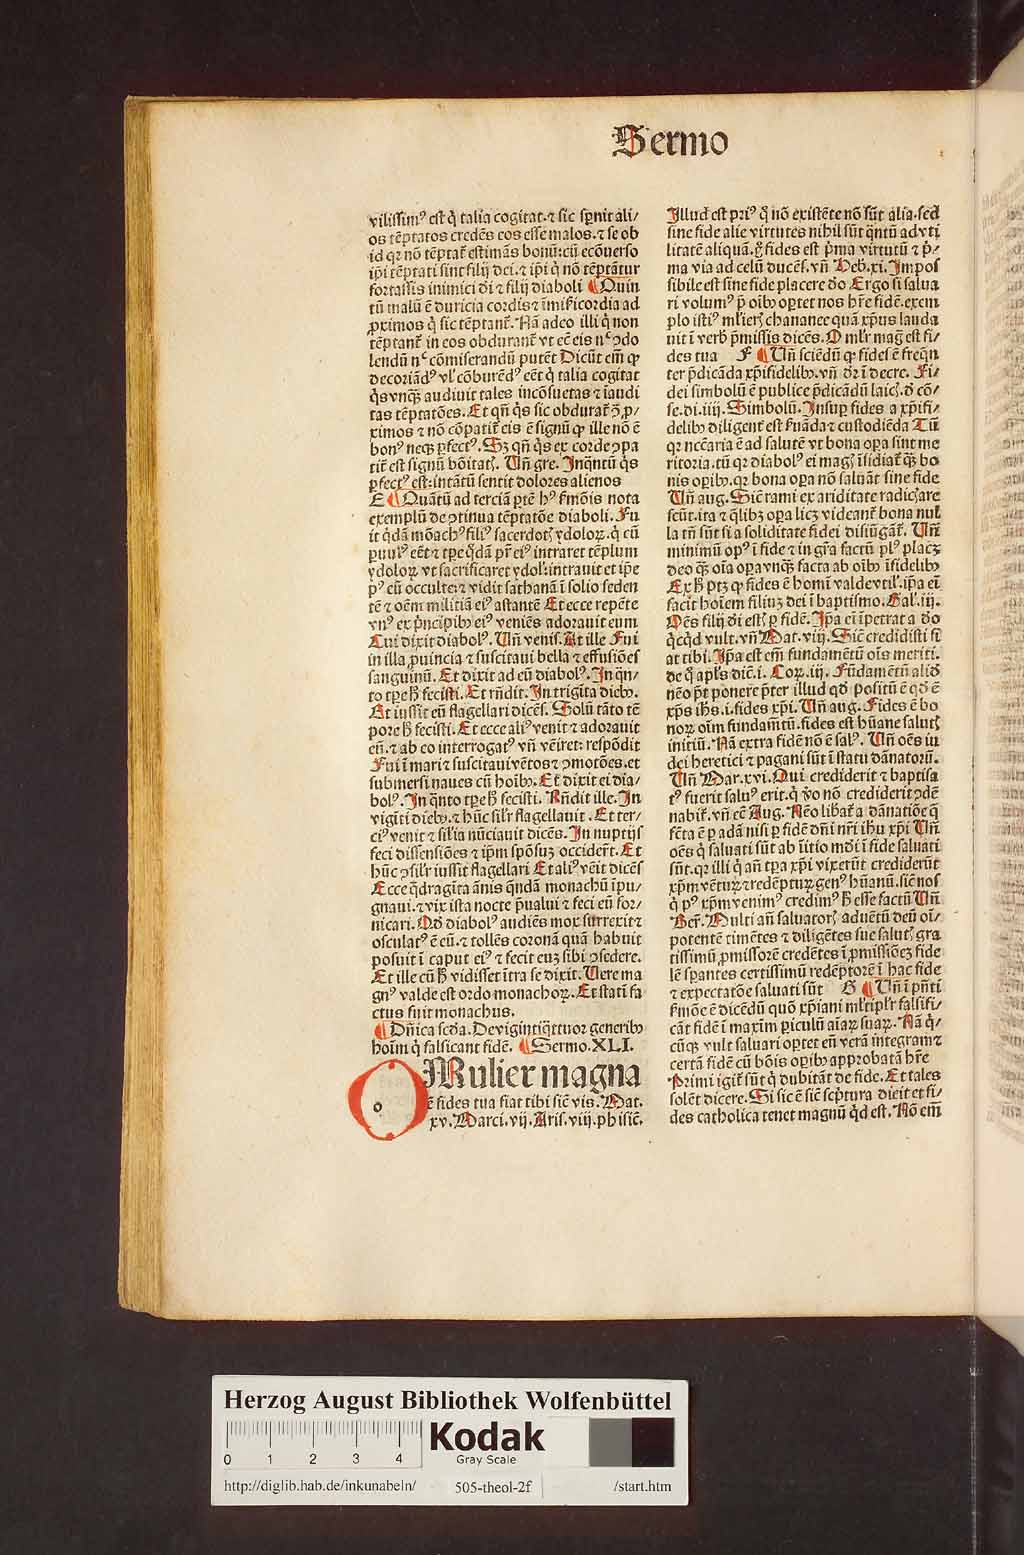 Sermo
vilissimꝰ est q̇ talia cogitat. ⁊ sic sp̲nit ali/
os tēptatos credēs eos esse malos. ⁊ se ob
id qꝛ nō tēptat᷑ estimās bonū: cū ecōuerso
ip̄i tēptati sint filij dei. ⁊ ip̄i q̇ nō tēptātur
fortassis inimici dī ⁊ filij diaboli ¶ Quin
tū malū ē duricia cordis ⁊ īmīcordia ad
ꝓximos q̇ sic tēptant᷑. Nā adeo illi q̇ non
tēptant᷑ in eos obdurant᷑ vt eē eis nᶜ ꝯdo
lendū nᶜ cōmiserandū putēt Dicūt em̄ ꝙ
decoriādꝰ vl' cōburēdꝰ eēt q̇ talia cogitat
q̇svnqꝫ audiuit tales incōsuetas ⁊ īaudi
tas tēptatōes. Et qn̄ q̇s sic obdurat᷑ ꝯ̄ ꝓ/
ximos ⁊ nō cōpatit᷑ eis ē signū ꝙ ille nō ē
bonꝰ neqꝫ ꝑfectꝰ. Sꝫ qn̄ q̇s ex corde ꝯpa
tit᷑ est signū bōitatꝭ. Vn̄ gre. Inqntū q̇s
ꝑfectꝰ est: intātū sentit dolores alienos
E ¶ Quātū ad terciā ꝑtē hꝰ s̄mōis nota
exemplū de ꝯtinua tēptatōe diaboli. Fu
it qdā mōachꝰ filiꝰ sacerdotꝭ ydoloꝝ. q̇ cū
ꝑuulꝰ eēt ⁊ tꝑe qdā pr̄ eiꝰ intraret tēplum
ydoloꝝ vt sacrificaret ydol': intrauit et ip̄e
pꝰ eū occulte: ⁊ vidit sathanā ī solio seden
tē ⁊ oēm militiā eiꝰ astantē Et ecce repēte
vnꝰ ex p̄ncipibꝰ eiꝰ veniēs adorauit eum
Cui dixit diabolꝰ. Vn̄ venis. At ille Fui
in illa ꝓuincia ⁊ suscitaui bella ⁊ effusiōes
sanguinū. Et dixit ad eū diabolꝰ. In qn/
to tꝑe h̄ fecisti. Et rn̄dit. In trigīta diebꝰ.
At iussit eū flagellari dicēs. Solū tāto tē
pore h̄ fecisti. Et ecce aliꝰ venit ⁊ adorauit
eū. ⁊ ab eo interrogatꝰ vn̄ vēiret: respōdit
Fui ī mari ⁊ suscitaui vētos ⁊ ꝯmotōes. et
submersi naues cū hoībꝰ. Et dixit ei dia/
bolꝰ. In qnto tꝑe h̄ fecisti. Rn̄dit ille. In
vigīti diebꝰ. ⁊ hūc sil'r flagellauit. Et ter/
ciꝰ venit ⁊ sil'ia nūciauit dicēs. In nuptijs
feci dissensiōes ⁊ ip̄m spōsuꝫ occidert̄. Et
hūc ꝯsil'r iussit flagellari Et aliꝰ vēit dicēs
Ecce qdragīta ānis qndā monachū īpu/
gnaui. ⁊ vix ista nocte p̄ualui ⁊ feci eū for/
nicari. Qd̄ diabolꝰ audiēs mox surrexit ⁊
osculatꝰ ē eū. ⁊ tollēs coronā quā habuit
posuit ī caput eiꝰ ⁊ fecit euꝫ sibi ꝯsedere.
Et ille cū h̄ vidisset ītra se dixit. Vere ma
gnꝰ valde est ordo monachoꝝ. Et statī fa
ctus fuit monachus.
¶ Dn̄ica scd̄a. De vigintiqttuor generibꝰ
hoīm q̇ falsicant fidē. ¶ Sermo. XLI.
O Mulier magna
ē fides tua fiat tibi sic̄ vis. Mat.
xv. Marci. vij. Aris. viij. phisic̄.
Illud est priꝰ q̇ nō existēte nō sūt alia. sed
sine fide alie virtutes nihil sūt qntū ad vti
litatē aliquā. g̊ fides est p̄ma virtutū ⁊ p̄/
ma via ad celū ducēs. vn̄ Heb. xi. Impos
sibile est sine fide placere do Ergo si salua
ri volumꝰ p̄ oībꝰ oꝑtet nos hr̄e fidē. exem
plo istiꝰ ml'ierꝭ chananee quā xp̄us lauda
uit ī verb̄ p̄missis dicēs. O ml'r mag̊ est fi/
des tua F ¶ Vn̄ sciēdū ꝙ fides ē freqn
ter p̄dicāda xp̄ifidelibꝰ. vn̄ dr̄ ī decre. Fi/
dei simbolū ē publice p̄dicādū laicꝭ. d' cō/
se. di. iiij. Simbolū. Insuꝑ fides a xp̄ifi/
delibꝰ diligent᷑ est s̄uāda ⁊ custodiēda Tū
qꝛ ncc̄aria ē ad salutē vt bona oꝑa sint me
ritoria. tū qꝛ diabolꝰ ei magꝭ īsidiat᷑ qꝫ bo
nis oꝑibꝰ. qꝛ bona oꝑa nō saluāt sine fide
Vn̄ aug. Sic̄ rami ex ariditate radicꝭ are
scūt. ita ⁊ qlibꝫ oꝑa licꝫ videant᷑ bona nul
la tn̄ sūt si a soliditate fidei disiūgāt᷑. Vn̄
minimū opꝰ ī fide ⁊ in gr̄a factū plꝰ placꝫ
deo qꝫ oīa oꝑa vnqꝫ facta ab oībꝰ īfidelibꝰ
Ex h̄ ptꝫ ꝙ fides ē homī valde vtil'. ip̄a eī
facit hoīem filiuꝫ dei ī baptismo. Gal'. iij.
Oēs filij dī estꝭ ꝑ fidē. Ip̄a eī īpetrat a do
qcqd vult. vn̄ Mat. viij. Sic̄ credidisti fi
at tibi. Ip̄a est em̄ fundamētū oīs meriti.
de q̊ apl's dic̄. i. Coꝝ. iij. Fūdamētū aliud
nēo pt̄ ponere p̄ter illud qd̄ positū ē qd̄ ē
xp̄s ih̄s. i. fides xp̄i. Vn̄ aug. Fides ē bo
noꝝ oīm fundam̄tū. fides est hūane salutꝭ
initiū. Nā extra fidē nō ē salꝰ. Vn̄ oēs iu
dei heretici ⁊ pagani sūt ī statu dānatoꝝ.
Vn̄ Mar. xvi. Qui crediderit ⁊ baptisa
tꝰ fuerit saluꝰ erit. q̇ vo nō crediderit ꝯdē
nabit᷑. vn̄ eē Aug. Nēo libat᷑ a dānatiōe q̄
fcta ē ꝑ adā nisi ꝑ fidē dn̄i nr̄i ih̄u xp̄i Vn̄
oēs q̇ saluati sūt ab ītio mdi ī fide saluati
sūt. qꝛ illi q̇ an̄ tꝑa xp̄i vixerūt crediderūt
xp̄m vētuꝝ ⁊ redēptuꝝ genꝰ hūanū. sic̄ nos
q̇ pꝰ xp̄m venimꝰ credimꝰ h̄ esse factū Vn̄
Ber̄. Multi an̄ saluatorꝭ aduētū deū oī/
potentē timētes ⁊ diligētes sue salutꝭ gra
tissimū ꝓmissorē credētes ī ꝓmissiōeꝫ fide
lē sꝑantes certissimū redēptorē ī hac fide
⁊ expectatōe saluati sūt G ¶ Vn̄ ī pn̄ti
s̄mōe ē dicēdū quō xp̄iani ml'tipl'r falsifi/
cāt fidē ī maxīm ꝑiculū aīaꝝ suaꝝ. Nā q̇/
cūqꝫ vult saluari oꝑtet eū verā integram ⁊
certā fidē cū bōis oꝑibꝰ approbatā hr̄e
Primi igit᷑ sūt q̇ dubitāt de fide. Et tales
solēt dicere. Si sic̄ ē sic̄ sc̄ptura dicit et fi/
des catholica tenet magnū qd est. Nō em̄
Herzog August Bibliothek Wolfenbüttel
0 1 2 3 4
Kodak
Gray Scale
http://diglib.hab.de/inkunabeln/ 505-theol-2f /start.htm